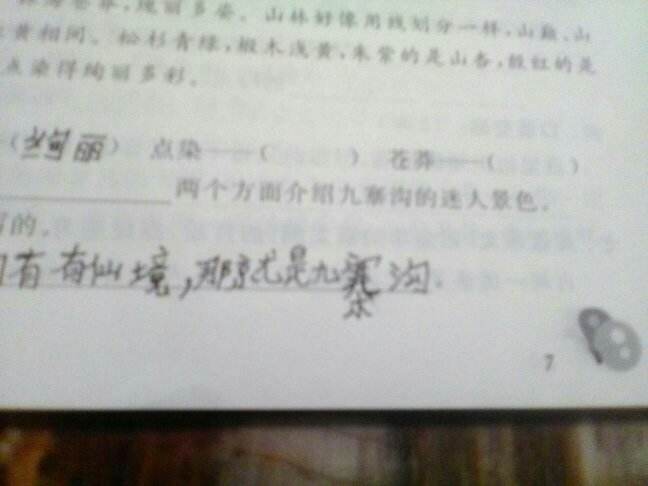 苍莽,绚丽多姿。山林好像用线划分一样,山巅、山
黄相间。松杉青绿,椴木浅黄,朱紫的是山杏,殷红的是
点染得绚丽多彩。
(绚丽) 点染——( ) 苍莽——( )
两个方面介绍九寨沟的迷人景色。
的。
有奇仙境,那就是九寨沟。
7